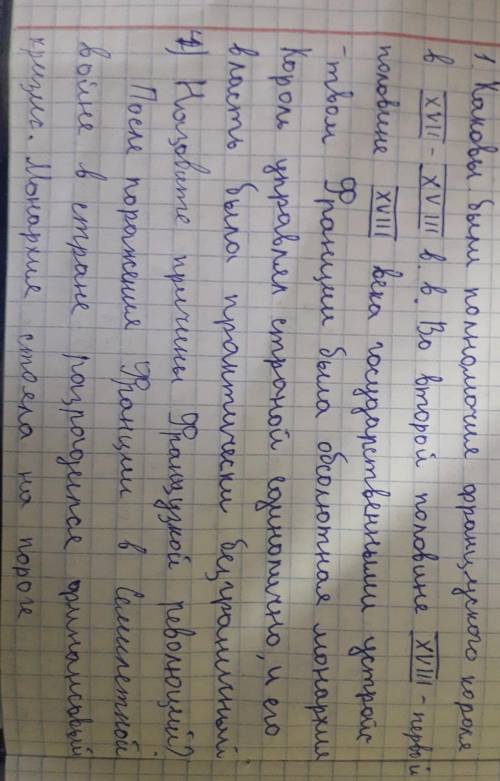 1 Каковы были полномочия французского короля
в XVII - XVIII в.в. Во второй половине XVIII - первой
половине XVIII века государственными устройс
-твом Франции была абсолютная монархия
Король управлял страной единолично, и его
власть была практически безграничный
2) Назовите причины Французкой революций?
После поражения Франции в Семилетной
войне в стране разрадился финансовый
кризис. Монархия стояла на пороге